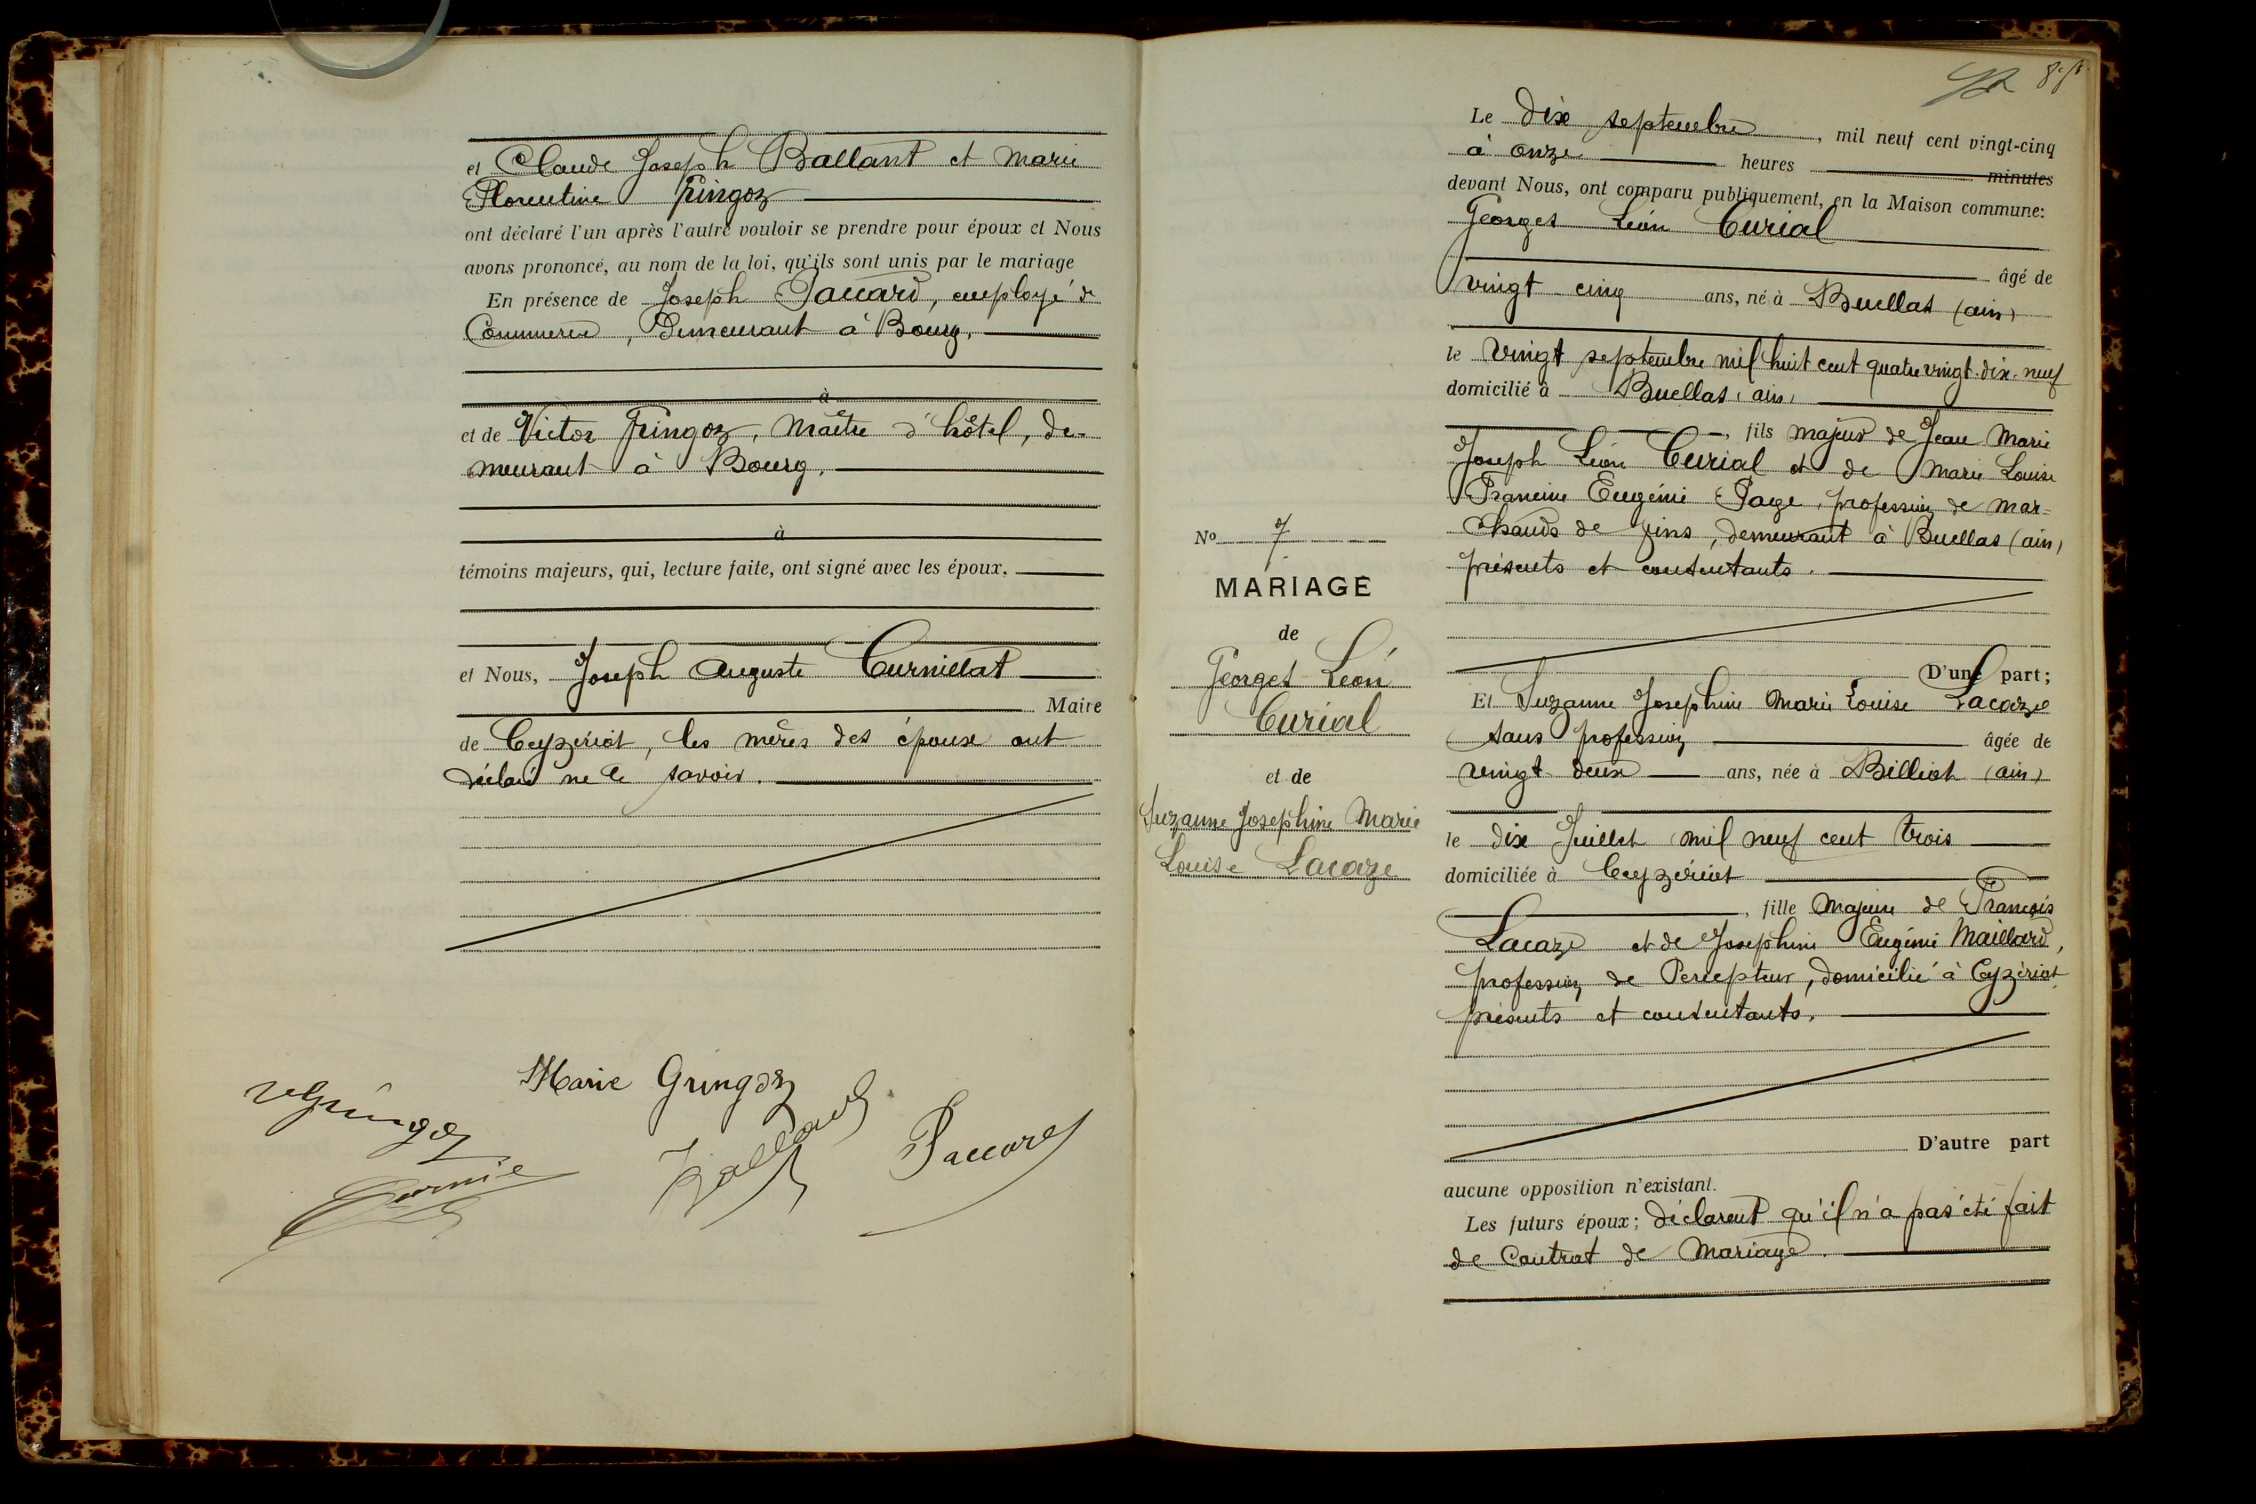 et Claude Joseph Ballant et Marie
Florentine Gringoz
ont déclaré l'un après l'autre vouloir se prendre pour époux et Nous
avons prononcé, au nom de la loi, qu'ils sont unis par le mariage
En présence de Joseph Paccard, employé de
Commerce, Demeurant à Bourg.
à
et de Victor Gringoz, Maître d'hôtel, de-
meurant à Bourg.
à
témoins majeurs, qui, lecture faite, ont signé avec les époux.
et Nous, Joseph Auguste Curnillat
Maire
de Ceyzériat, les mères des époux ont
déclaré ne le savoir.
Marie Gringoz
VGringoz
Paccard
Le Dix septembre, mil neuf cent vingt-cinq
à onze heures minutes
devant Nous, ont comparu publiquement, en la Maison commune:
Georges Léon Curial
âgé de
vingt cinq ans, né à Buellas (ain)
le vingt septembre mil huit cent quatre vingt-dix-neuf
domicilié à Buellas (ain)
, fils majeur de Jean Marie
Joseph Léon Curial et de Marie Louise
Francine Eugénie Page, profession de mar-
chands de vins, demeurant à Buellas (ain)
présents et consentants.
D'une part;
Et Suzanne Josephine Marie Louise Lacaze
sans profession âgée de
vingt deux ans, née à Billiat (ain)
le dix Juillet mil neuf cent trois
domiciliée à Ceyzériat
, fille majeure de François
Lacaze et de Josephine Eugénie Maillard,
profession de Percepteur, domicilié à Ceyzériat
présents et consentants.
D'autre part
aucune opposition n'existant.
Les futurs époux; déclarent qu'il n'a pas été fait
de contrat de Mariage.
No 7
MARIAGE
de
Georges Léon
Curial
et de
Suzanne Josephine Marie
Louise Lacaze